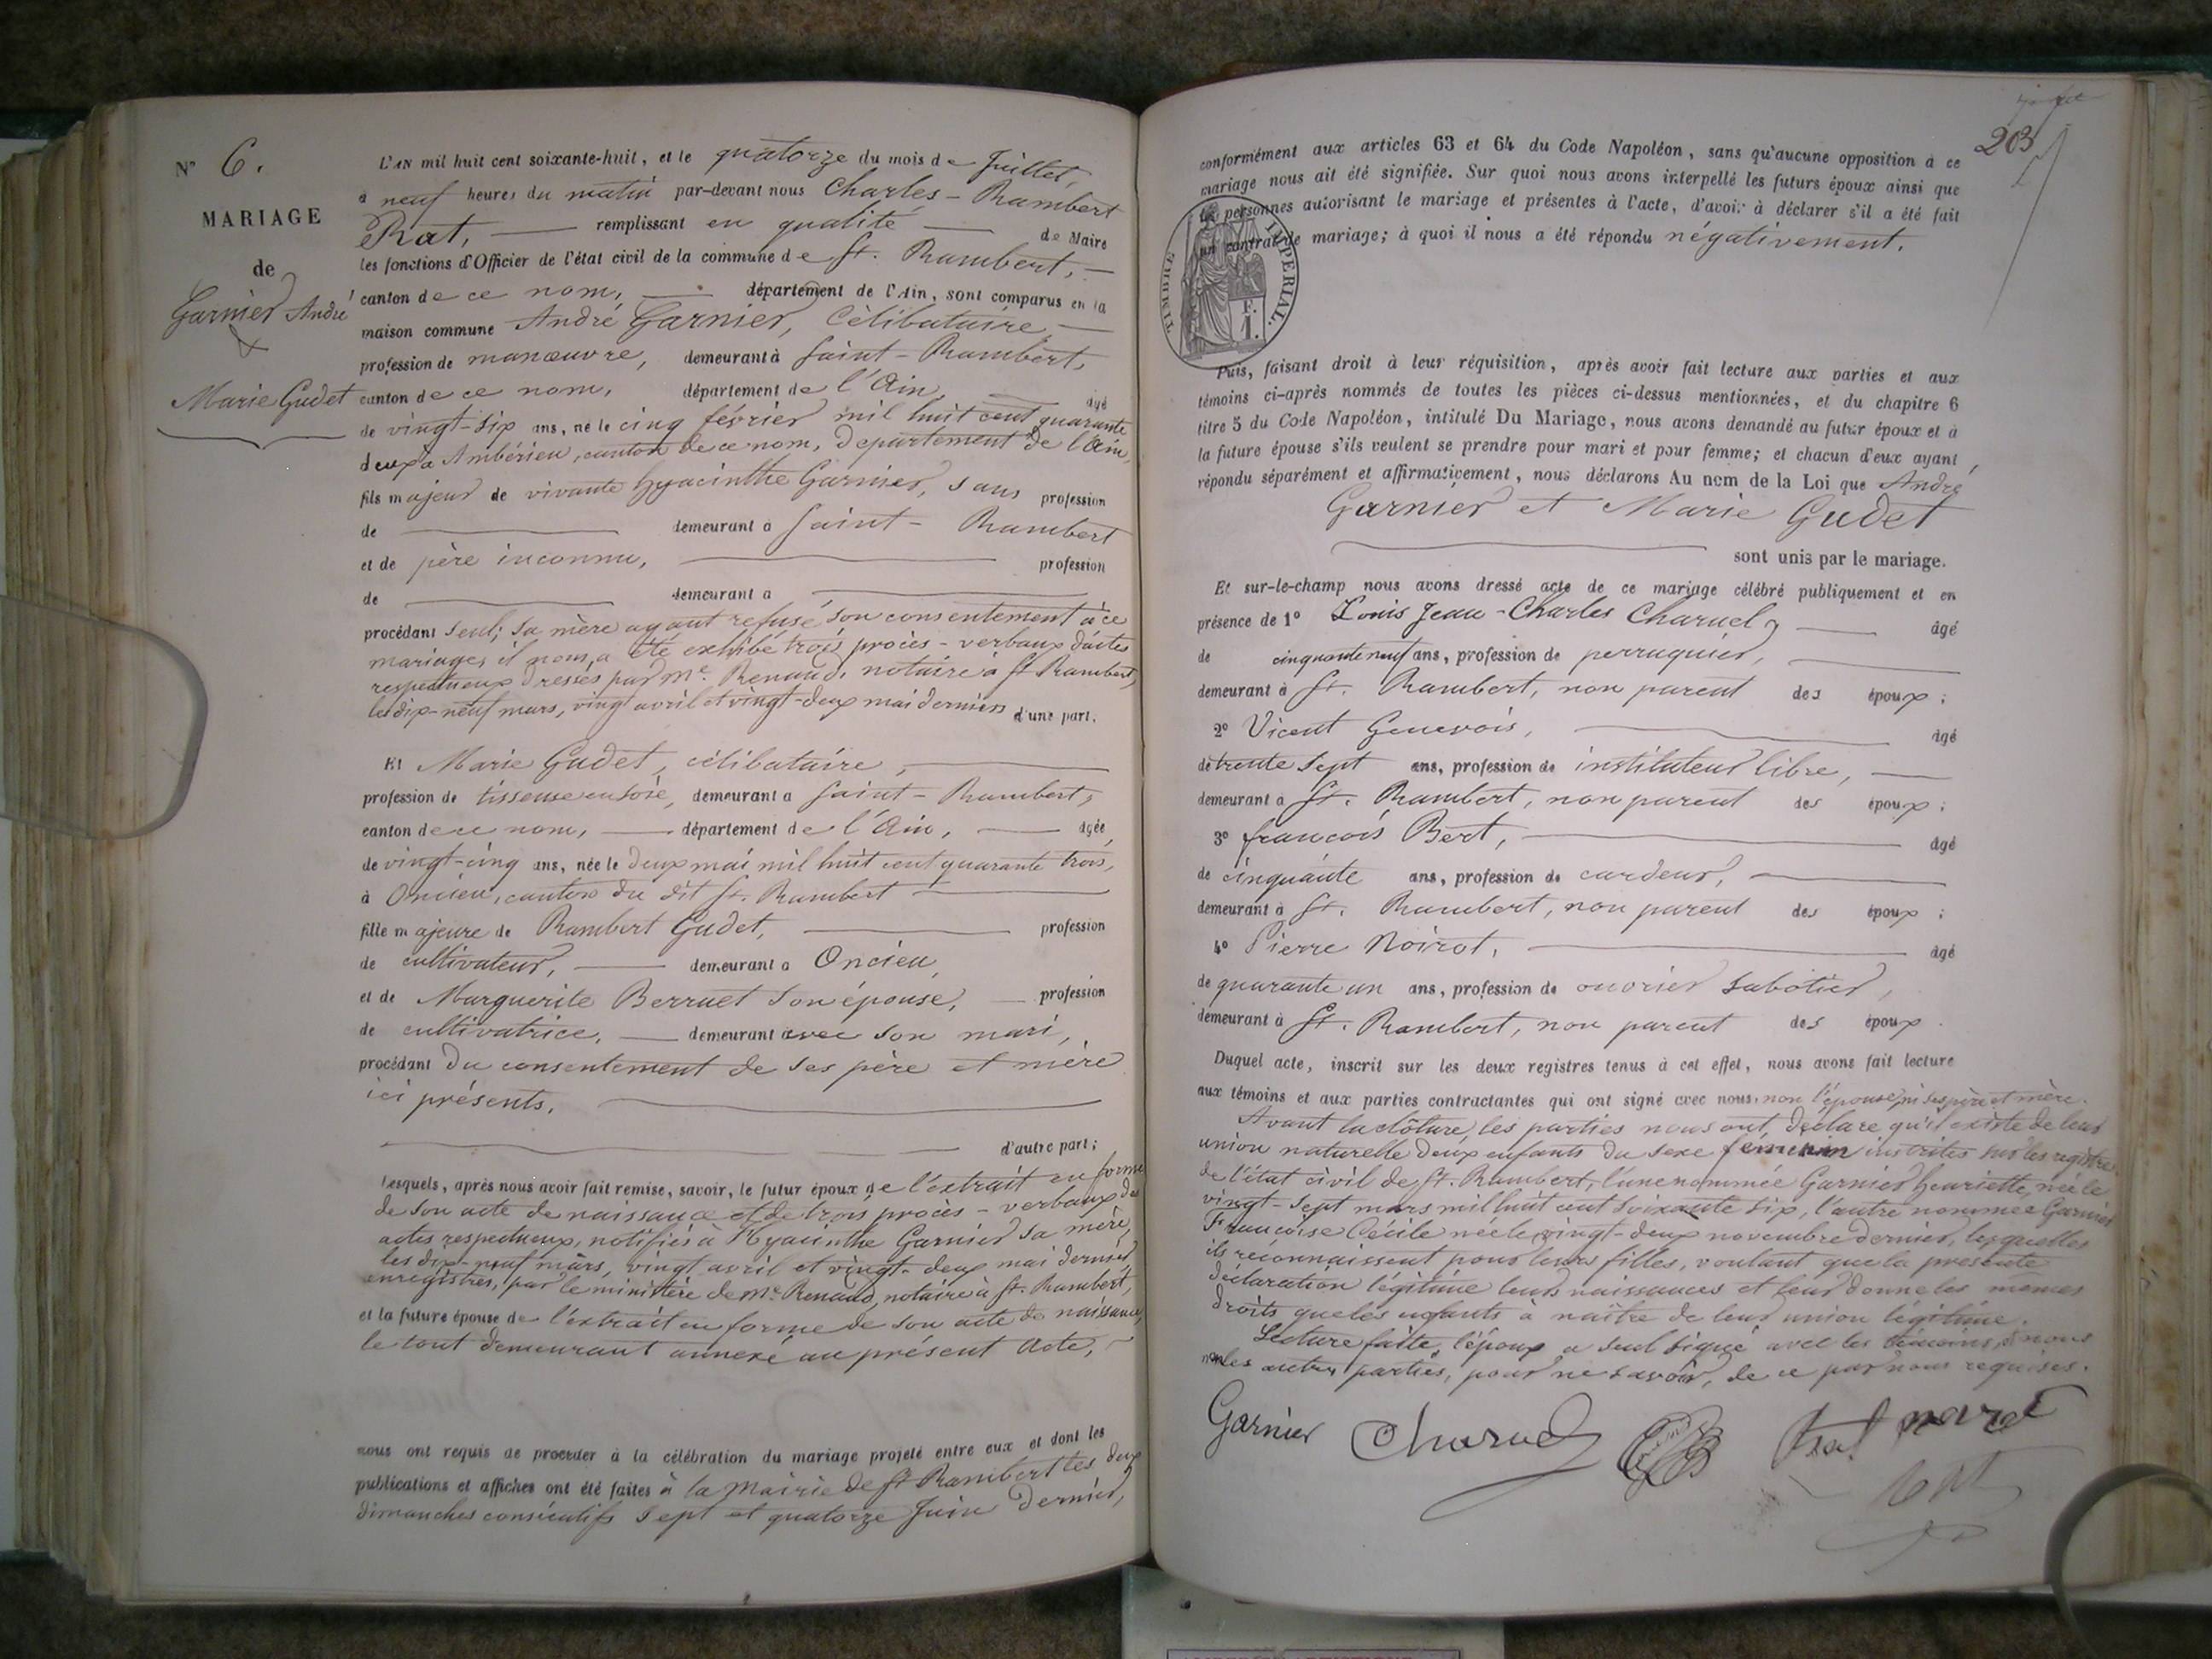 N° 6.
MARIAGE
de
Garnier André
&
Marie Gudet
L'AN mil huit cent soixante-huit, et le quatorze du mois de Juillet,
à neuf heures du matin par-devant nous Charles-Rambert
Rat, remplissant en qualité de Maire
les fonctions d'Officier de l'état civil de la commune de St. Rambert,
canton de ce nom, département de l'Ain, sont comparus en la
maison commune André Garnier, Célibataire
profession de manœuvre, demeurant à Saint-Rambert,
canton de ce nom, département de l'Ain, âgé
de vingt-six ans, né le cinq février mil huit cent quarante
deux à Ambérieu, canton de ce nom, département de l'Ain,
fils majeur de vivante hyacinthe Garnier, sans profession
de demeurant à Saint-Rambert
et de père inconnu, profession
de demeurant à
procédant seul; sa mère ayant refusé son consentement à ce
mariage, il nous a été exhibé trois procès-verbaux d'actes
respectueux dressés par Me. Renaud, notaire à St Rambert,
les dix-neuf mars, vingt avril et vingt-deux mai derniers d'une part.
Et Marie Gudet, célibataire,
profession de tisseuse en soie, demeurant à Saint-Rambert,
canton de ce nom, département de l'Ain, âgée
de vingt-cinq ans, née le deux mai mil huit cent quarante trois,
à Oncieu, canton du dit St. Rambert
fille majeure de Rambert Gudet, profession
de cultivateur, demeurant à Oncieu,
et de Marguerite Berruet son épouse, profession
de cultivatrice, demeurant avec son mari,
procédant du consentement de ses père et mère
ici présents,
d'autre part;
Lesquels, après nous avoir fait remise, savoir, le futur époux de l'extrait en forme
de son acte de naissance et de trois procès-verbaux des
actes respectueux, notifiés à Hyacinthe Garnier sa mère,
les dix-neuf mars, vingt avril et vingt-deux mai dernier
enregistrés, par le ministère de Me. Renaud, notaire à St. Rambert,
et la future épouse de l'extrait en forme de son acte de naissance,
le tout demeurant annexé au présent acte,
nous ont requis de procéder à la célébration du mariage projeté entre eux et dont les
publications et affiches ont été faites à la Mairie de St Rambert les deux
dimanches consécutifs sept et quatorze Juin dernier,
203
conformément aux articles 63 et 64 du Code Napoléon, sans qu'aucune opposition à ce
mariage nous ait été signifiée. Sur quoi nous avons interpellé les futurs époux ainsi que
les personnes autorisant le mariage et présentes à l'acte, d'avoir à déclarer s'il a été fait
un contrat de mariage; à quoi il nous a été répondu négativement.
TIMBRE IMPERIAL.
F.
1.
Puis, faisant droit à leur réquisition, après avoir fait lecture aux parties et aux
témoins ci-après nommés de toutes les pièces ci-dessus mentionnées, et du chapitre 6
titre 5 du Code Napoléon, intitulé Du Mariage, nous avons demandé au futur époux et à
la future épouse s'ils veulent se prendre pour mari et pour femme; et chacun d'eux ayant
répondu séparément et affirmativement, nous déclarons Au nom de la Loi que André
Garnier et Marie Gudet
sont unis par le mariage.
Et sur-le-champ nous avons dressé acte de ce mariage célébré publiquement et en
présence de 1° Louis Jean-Charles Charuel, âgé
de cinquante neuf ans, profession de perruquier,
demeurant à St. Rambert, non parent des époux;
2° Vicent Genevois, âgé
de trente sept ans, profession de instituteur libre,
demeurant à St. Rambert, non parent des époux;
3° françois Bert, âgé
de cinquante ans, profession de cardeur,
demeurant à St. Rambert, non parent des époux;
4° Pierre Noirot, âgé
de quarante un ans, profession de ouvrier sabotier,
demeurant à St. Rambert, non parent des époux.
Duquel acte, inscrit sur les deux registres tenus à cet effet, nous avons fait lecture
aux témoins et aux parties contractantes qui ont signé avec nous, non l'épouse, ni ses père et mère.
Avant la clôture, les parties nous ont déclaré qu'il existe de leur
union naturelle deux enfants du sexe féminin inscrites sur les registres
de l'état civil de St. Rambert, l'une nommée Garnier henriette, née le
vingt-sept mars mil huit cent soixante six, l'autre nommée Garnier
Françoise Cécile née le vingt-deux novembre dernier, lesquelles
ils reconnaissent pour leurs filles, voulant que la présente
déclaration légitime leurs naissances et leur donne les mêmes
droits que les enfants à naître de leur union légitime.
Lecture faite, l'époux a seul signé avec les témoins, & nous
non les autres parties, pour ne savoir, de ce par nous requises.
Garnier Charuel Rat noirot